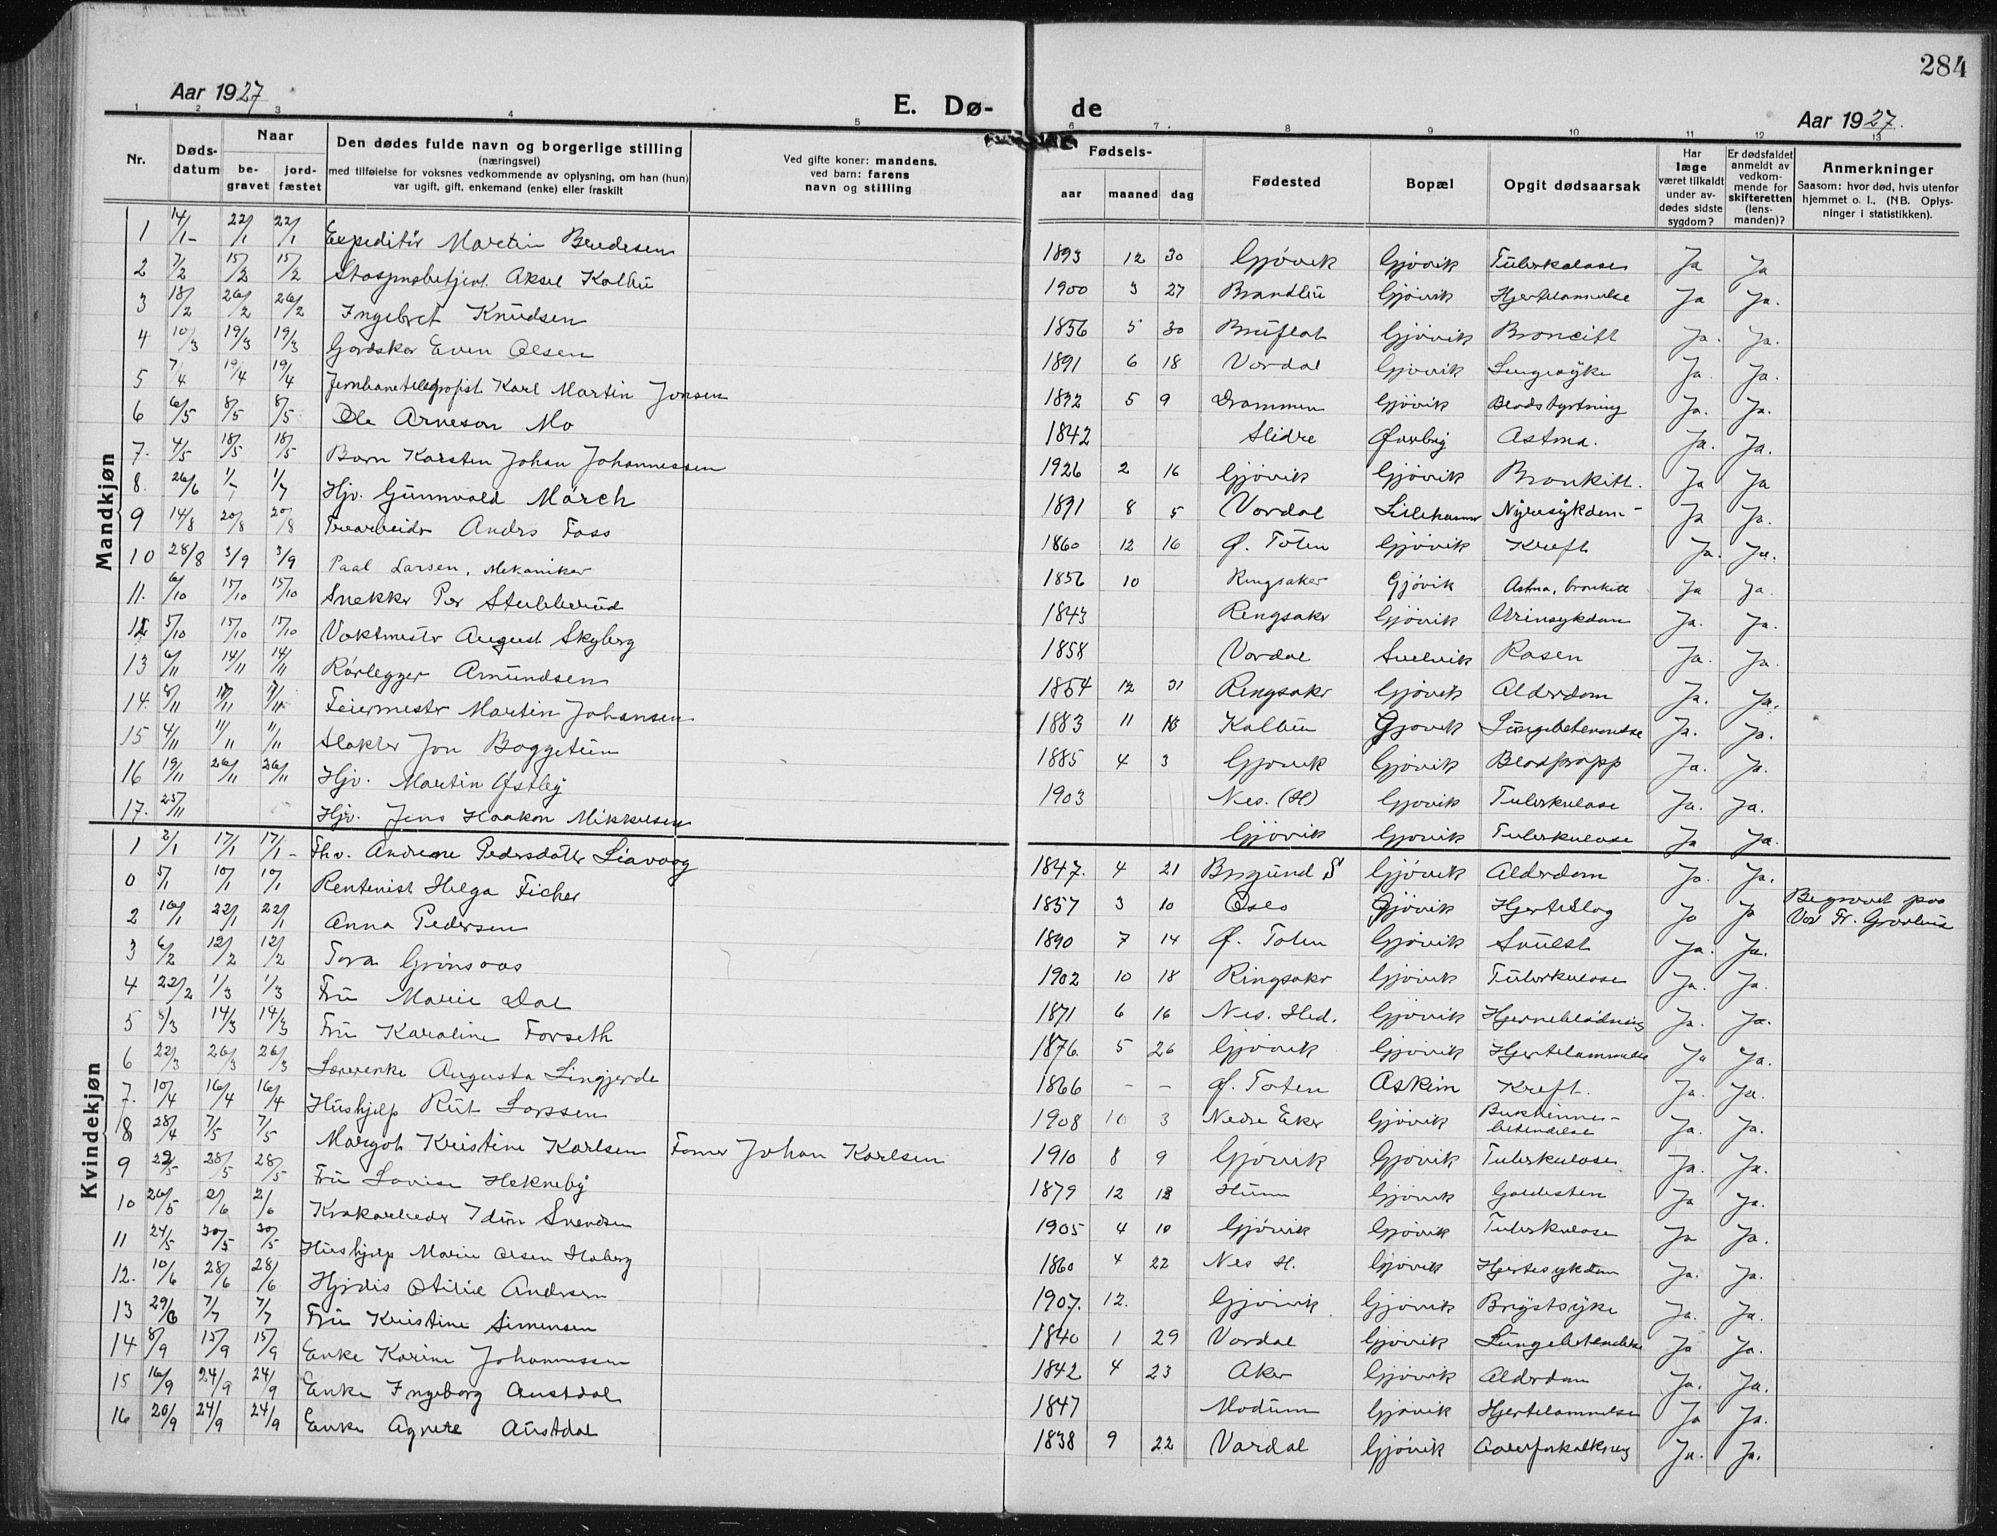 284
Aar 1927
E. Dø-
de
Aar 1927.
1 2 3 4 5 6 7. 8 9 10 11 12 13
Nr.
Døds-
datum
Naar
be-
gravet
jord-
fæstet
Den dødes fulde navn og borgerlige stilling
(næringsvei)
med tilføielse for voksnes vedkommende av oplysning, om han (hun)
var ugift, gift, enkemand (enke) eller fraskilt
Ved gifte koner: mandens,
ved barn: farens
navn og stilling
Fødsels-
aar maaned dag
Fødested
Bopæl
Opgit dødsaarsak
Har
læge
været tilkaldt
under av-
dødes sidste
sygdom?
Er dødsfaldet
anmeldt av
vedkom-
mende for
skifteretten
(lens-
manden)?
Anmerkninger
Saasom: hvor død, hvis utenfor
hjemmet o. l., (NB. Oplys-
ninger i statistikken).
Mandkjøn
1 14/1 22/1 22/1 Expeditør Martin Bredesen 1893 12 30 Gjøvik Gjøvik Tuberkulose Ja Ja
2 7/2 15/2 15/2 Aksel Kolbu 1900 3 27 Brandbu Gjøvik Hjertelammelse Ja Ja.
3 18/2 26/2 26/2 Ingebret Knudsen 1856 5 30 Bruflat Gjøvik Broncitt Ja. Ja.
4 10/3 19/3 19/3 Even Olsen 1891 6 18 Vardal Gjøvik Lungesyke Ja. Ja.
5 7/4 19/4 19/4 Jernbanetelegrafist Karl Martin Jonsen 1832 5 9 Drammen Gjøvik Blodstyrtning Ja. Ja.
6 6/5 8/5 8/5 Ole Arneson Mo 1842 Slidre Astma. Ja. Ja.
7. 4/5 18/5 18/5 Barn Karsten Johan Johannessen 1926 2 16 Gjøvik Gjøvik Bronkitt. Ja Ja
8. 26/6 1/7 1/7 Hjv. Gunnvald March 1891 8 5 Vardal Lillehammer Nyresykdom Ja Ja.
9 14/8 20/8 20/8 Trearbeider Anders Foss 1860 12 16 Ø. Toten Gjøvik Kreft Ja. Ja.
10 28/8 3/9 3/9 Paal Larsen, Mekaniker 1856 10 Ringsaker Gjøvik Astma, bronkitt Ja Ja.
11. 6/10 15/10 15/10 Snekker Per Stubberud 1843 Ringsaker Gjøvik Urinsykdom Ja. Ja.
12 5/10 15/10 15/10 Vaktmester August Skyberg 1858 Vardal Svelvik Rosen Ja. Ja.
13 6/11 14/11 14/11 Rørlegger Amundsen 1854 12 31 Ringsaker Gjøvik Alderdom Ja. Ja.
14. 8/11 Feiermester Martin Johansen 1883 11 18 Kolbu Gjøvik Lungebetennelse Ja. Ja.
15 4/11 11/11 11/11 Slakter Jon Baggetun 1885 4 3 Gjøvik Gjøvik Blodpropp Ja. Ja.
16 19/11 26/11 26/11 Hjv. Martin Østby 1903 Nes. (H) Gjøvik Tuberkulose Ja. Ja.
17. 25/11 Hjv. Jens Haakon Mikkelsen Gjøvik Gjøvik Tuberkulose Ja Ja.
Kvindekjøn
1 2/1 17/1 17/1 Fhv. Andreane Pedersdatter Liavaag 1847. 4 21 Borgund S Gjøvik Alderdom Ja. Ja.
0 5/1 10/1 10/1 Rentenist Helga Ficher 1857 3 10 Oslo Gjøvik Hjerteslag Ja Ja Begravet paa
Vor Fr. Gravlund
2 16/1 22/1 22/1 Anna Pedersen 1890 7 14 Ø. Toten Gjøvik Svulst Ja. Ja.
3 6/2 12/2 12/2 Tora Grønsaas 1902 10 18 Ringsaker Gjøvik Tuberkulose Ja. Ja.
4 22/2 1/3 1/3 Fru Marie Dal 1871 6 16 Nes. Hed. Gjøvik Hjerneblødning Ja. Ja.
5 8/3 14/3 14/3 Fru Karoline Forseth 1876. 5 26 Gjøvik Gjøvik Hjertelammelse Ja Ja.
6 22/3 26/3 26/3 Augusta Lingjerde 1866 - - Ø. Toten Askim Kreft. Ja. Ja.
7. 10/4 16/4 16/4 Hushjelp Rut Larssen 1908 10 3 Nedre Eker Gjøvik Bukhinne-
betendelse Ja. Ja.
8 28/4 7/5 7/5 Margot Kristine Karlsen Former Johan Karlsen 1910 8 9 Gjøvik Gjøvik Tuberkulose Ja. Ja.
9 22/5 28/5 28/5 Fru Lovise Hekneby 1879 12 12 Hunn Gjøvik Galdesten Ja Ja.
10 26/5 2/6 2/6 Idun Svendsen 1905 4 10 Gjøvik Gjøvik Tuberkulose Ja Ja.
11 24/5 30/5 30/5 Hushjelp Marie Olsen Haberg 1860 4 22 Nes H. Gjøvik Hjertesykdom Ja. Ja.
12. 10/6 28/6 28/6 Hjørdis Otilie Andersen 1907. 12. Gjøvik Gjøvik Brystsyke Ja. Ja.
13 29/6 7/7 7/7 Fru Kristine Simensen 1840 1 29 Vardal Gjøvik Lungebetendelse Ja Ja.
14 8/9 15/9 15/9 Enke Karine Johannessen 1842 4 23 Aker Gjøvik Alderdom Ja. Ja.
15 16/9 24/9 24/9 Enke Ingeborg Austdal 1847 Modum Gjøvik Hjertelammelse Ja Ja.
16 20/9 24/9 24/9 Enke Agnete Austdal 1838 9 22 Vardal Gjøvik Aareforkalkning Ja. Ja.